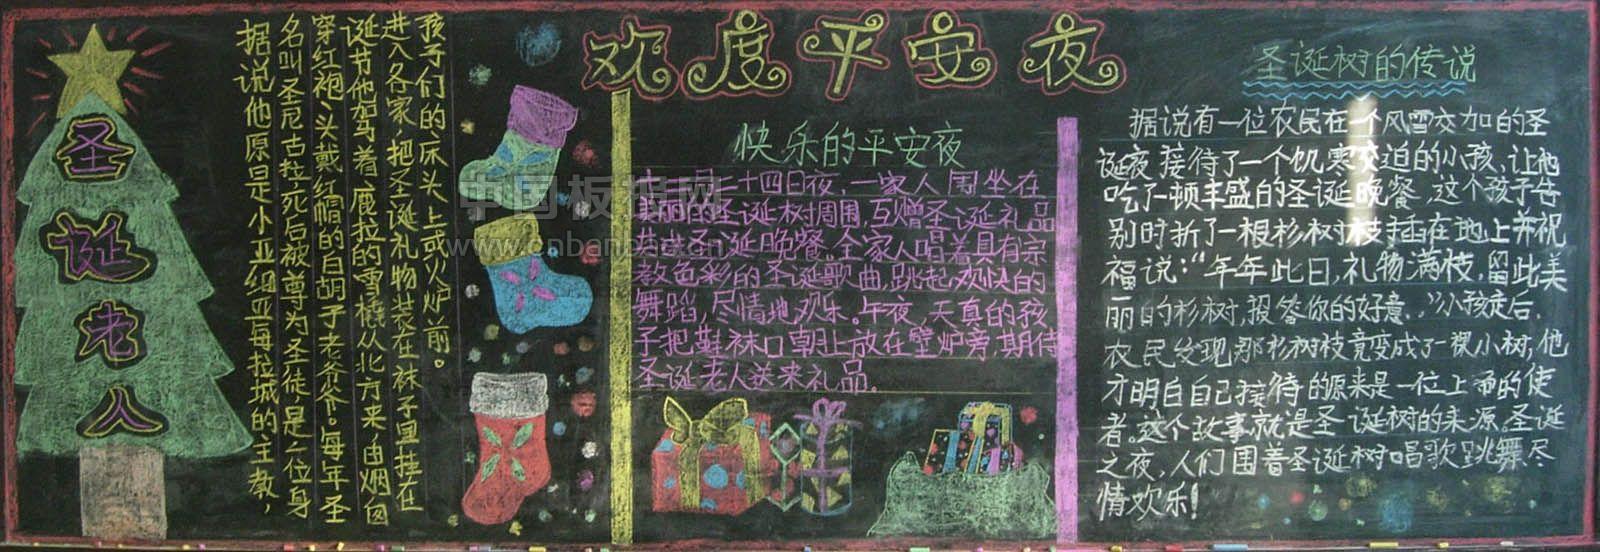 欢度平安夜
圣诞老人
据说他原是小亚细亚每拉城的主教，
名叫圣尼古拉，死后被尊为圣徒，是一位身
穿红袍、头戴红帽的白胡子老爷爷。每年圣
诞节他驾着鹿拉的雪橇从北方来，由烟囱
进入各家，把圣诞礼物装在袜子里挂在
孩子们的床头上或火炉前。
快乐的平安夜
二十四日夜，一家人围坐在
丽的圣诞树周围，互赠圣诞礼品
圣诞晚餐。全家人唱着具有宗
教色彩的圣诞歌曲，跳起欢快的
舞蹈，尽情地欢乐。午夜，天真的孩
子把鞋袜口朝上放在壁炉旁，期待
圣诞老人送来礼品。
圣诞树的传说
据说有一位农民在一个风雪交加的圣
诞夜接待了一个饥寒交迫的小孩，让他
吃了一顿丰盛的圣诞晚餐，这个孩子告
别时折了一根杉树枝插在地上并祝
福说：“年年此日，礼物满枝，留此美
丽的杉树，报答你的好意。”小孩走后，
农民发现那杉树枝竟变成了一棵小树，他
才明白自己接待的原来是一位上帝的使
者。这个故事就是圣诞树的来源。圣诞
之夜，人们围着圣诞树唱歌跳舞尽
情欢乐！
中国板报网
www.cnbanbao.cn